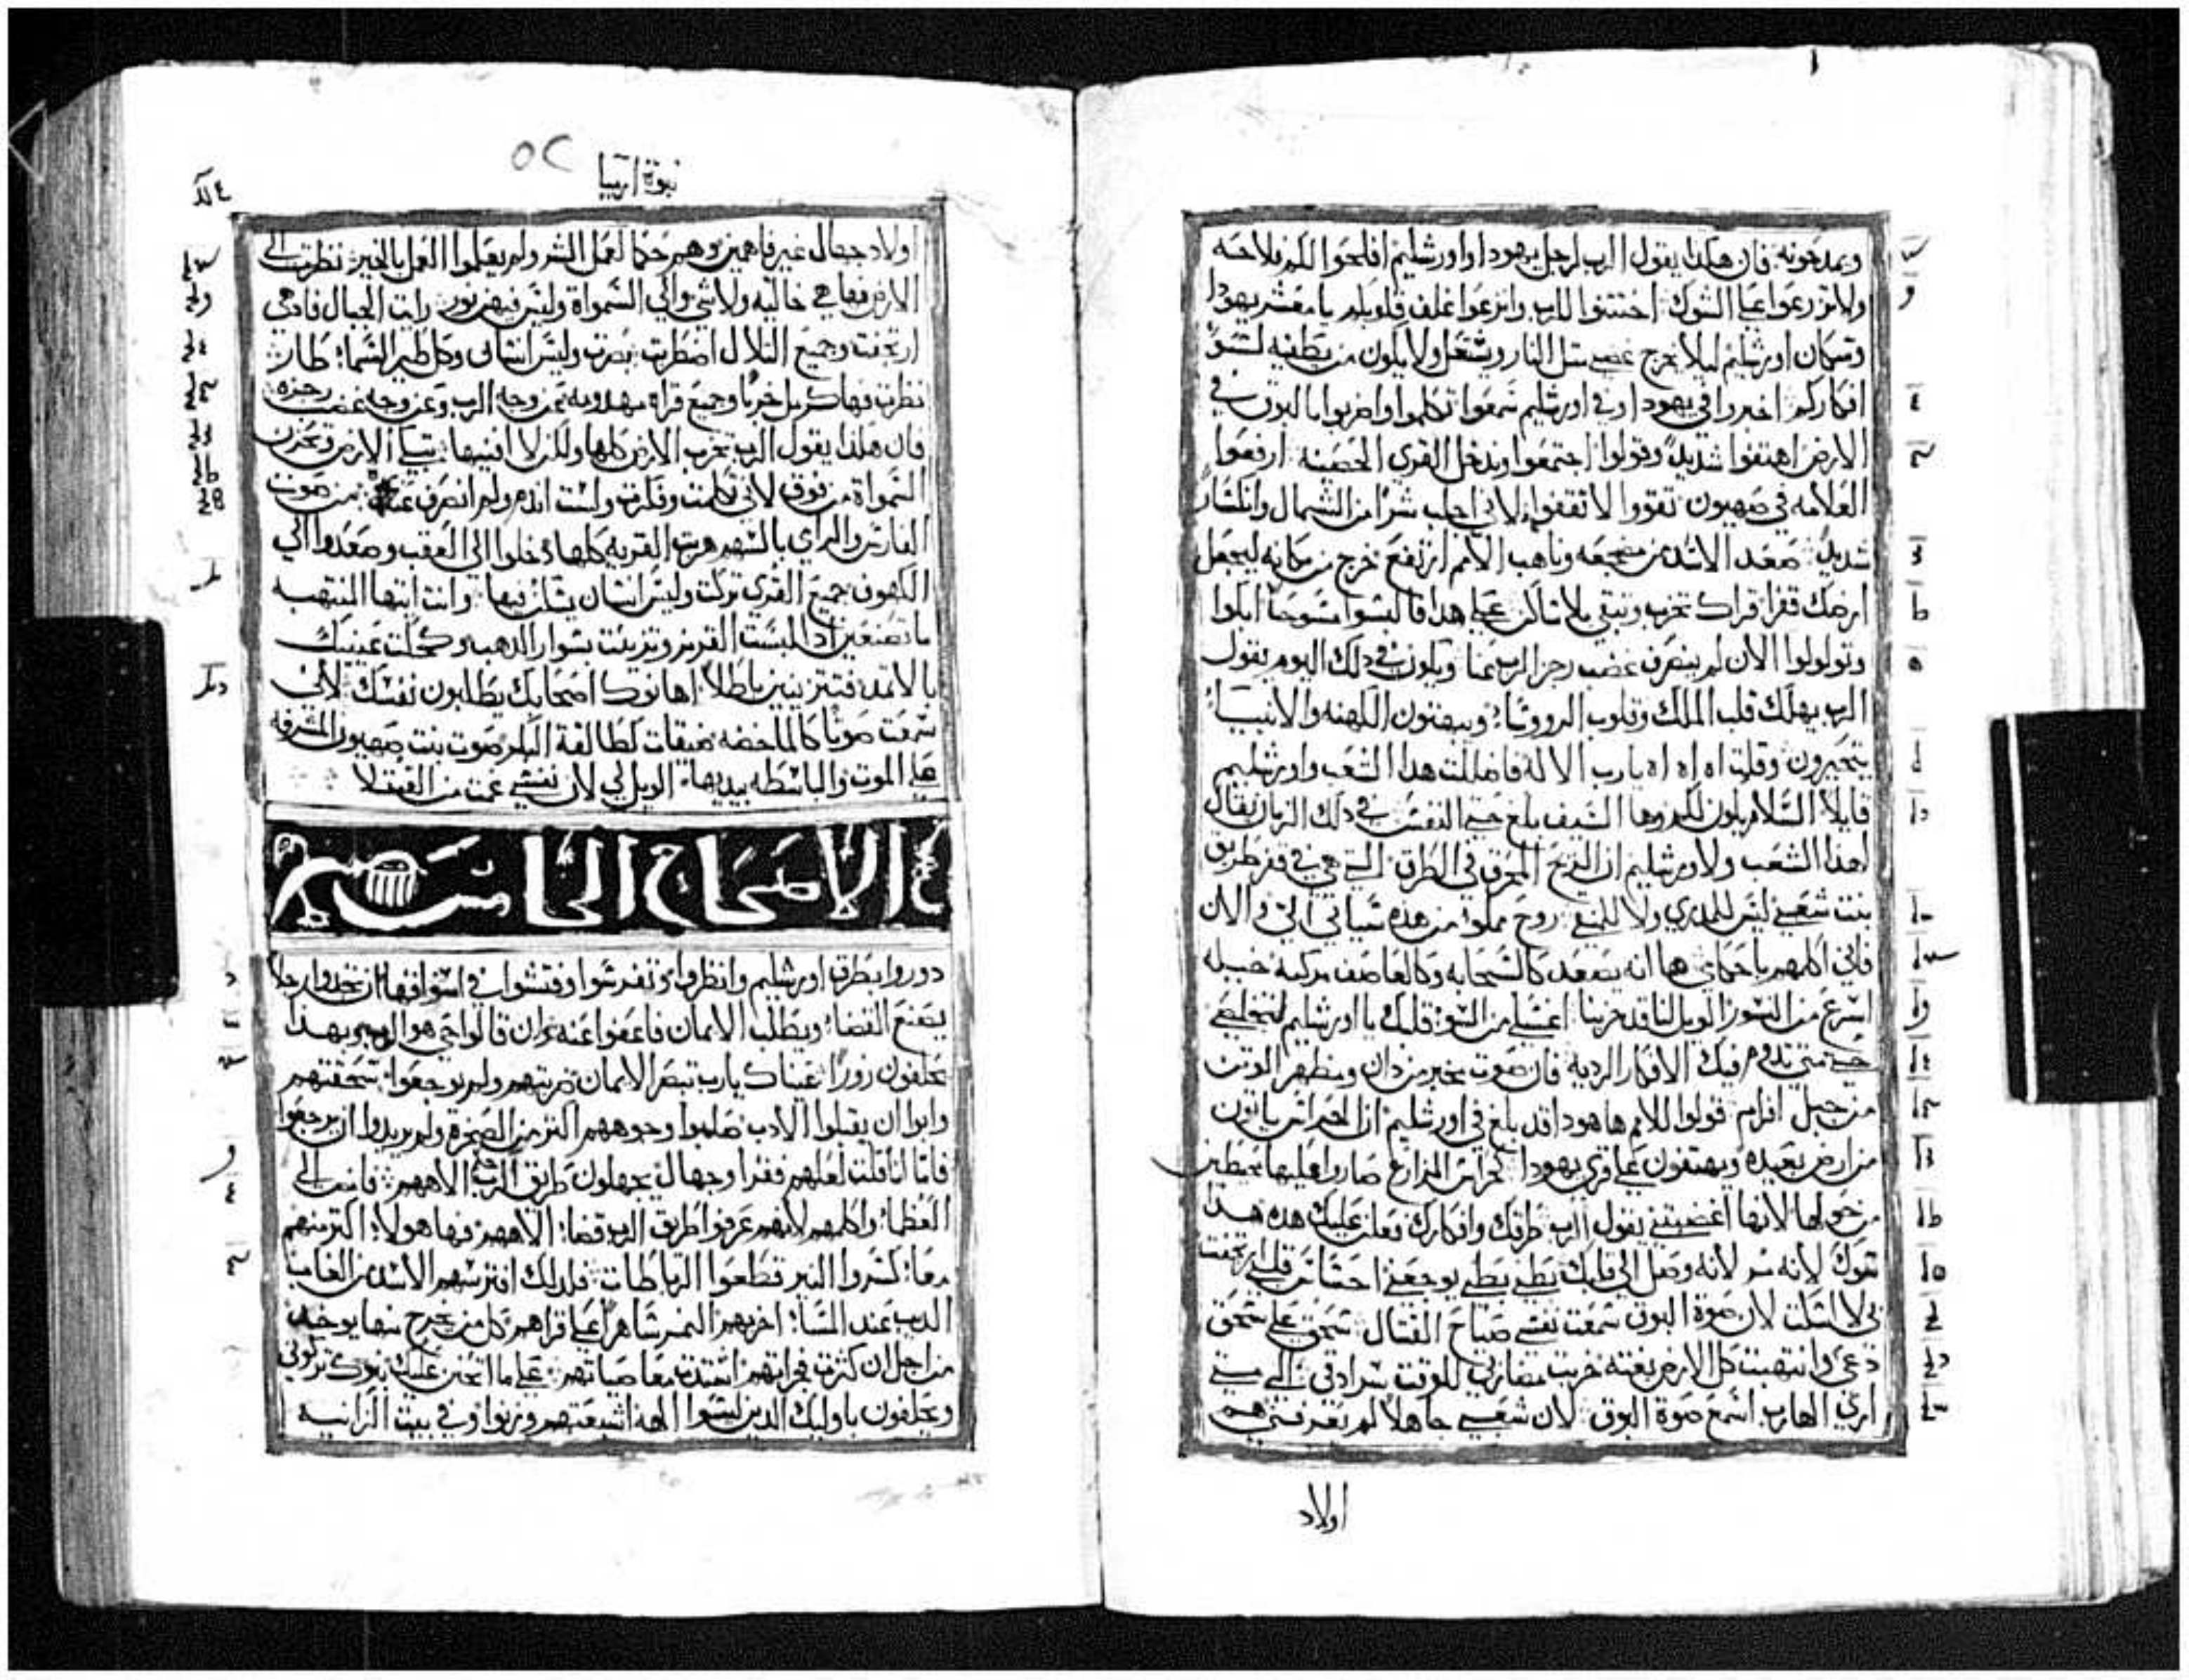 ويمدحونه فان هكذا يقول الرب لرجل يهودا واورشليم افلحوا لكم فلاحه
ولا تزرعوا علي الشوك اختتنوا للرب وانزعوا غلف قلوبكم يا معشر يهودا
وسكان اورشليم ليلا يخرج غضبي مثل النار ويشتعل ولا يكون من يطفيه لسو
افكاركم اخبروا في يهودا وفي اورشليم سمعوا تكلموا واضربوا بالبوق في
الارض اهتفوا شديدا وقولوا اجتمعوا وندخل القري الحصينه ارفعوا
العلامه في صهيون تقووا لا تقفوا لاني اجلب شرا من الشمال وانكسار
شديد صعد الاسد من مضجعه وناهب الامم ارتفع خرج من مكانه ليجعل
ارضك قفرا قراك تخرب وتبقي بلا ساكن علي هذا فالبسوا مسوحا ابكوا
وتولولوا الان لم ينصرف غضب رجز الرب عنا ويكون في ذلك اليوم يقول
الرب يهلك قلب الملك وقلوب الرووسا ويبهتون الكهنه والانبيا
يتحيرون وقلت اه اه اه يا رب الاله فاضللت هذا الشعب واورشليم
قايلا السلام يكون لكم وها السيف بلغ حتي النفس في ذلك الزمان يقال
لهذا الشعب ولاورشليم ان الريح المحرق في الطرق التي هي في قفر طريق
بنت شعبي ليس للمذري ولا للمنقي روح مملوه من هذه سياتي الي والان
فاني اكلمهم باحكامي هما انه يصعد كالسحابه وكالعاصف مركبه خيله
اسرع من النسور الويل لنا قد خربنا اغسلي من السو قلبك يا اورشليم لتخلصي
حتي متي تدوم فيك الافكار الرديه فان صوت مخبر من دان ومظهر الوثن
من جبل افرام قولوا للامم ها هوذا قد بلغ في اورشليم ان الحراس ياتون
من ارض بعيده ويهتفون علي قري يهودا كحراس المزارع صاروا عليها محيطين
من حولها لانها اغضبتني يقول الرب طرقك وافكارك فعلت عليك هذه هذا
سوك لانه مر لانه وصل الي قلبك بطني بطني يوجعني احشا قلبي ارتجفت
في لا اسكت لان صوة البوق سمعت نفسي صياح القتال سحق علي سحق
دعي وانتهبت كل الارض بغته خربت مضاربي للوقت سرادقي الي متي
اري الهارب اسمع صوة البوق لان شعبي جاهلا لم يعرفني هم
اولاد
نبوة ارميا
اولاد جهال غير فاهمين وهم حكما لعمل الشر ولم يعقلوا العمل بالخير نظرت الي
الارض فها هي خاليه ولا شي والي السمواة وليس فيهن نور رايت الجبال فاذ هي
ارتجفت وجميع التلال اضطربت بصرت وليس انسان وكل طير السما طار
نظرت فها كرمل خربا وجميع قراه مهدومه من وجه الرب وعن وجه غضب رجزه
فان هكذا يقول الرب تخرب الارض كلها ولكن لا افنيها تبكي الارض وتحزن
السمواة من فوق لاني تكلمت وفكرت ولست اندم ولم انصرف عنه من صوت
الفارس والرامي بالسهم هربت القريه كلها دخلوا الي العقب وصعدوا الي
الكهوف جميع القري تركت وليس انسان يسكن فيها وانت ايتها المنتهبه
ما تصنعين اذا لبست القرمز وتزينت بسوار الذهب وكحلت عينيك
بالاثمد فتتزينين باطلا اهانوك اصحابك يطلبون نفسك لاني
سمعت صوتا كالماخضه ضيقات كطالقة البكر صوت بنت صهيون المشرفه
علي الموت والباسطه يديها الويل لي لان نفسي غمت من القتلا
الاصحاح الخامس
دوروا بطرق اورشليم وانظروا وتفرسوا وفتشوا في اسواقها ان تجدوا رجلا
يصنع القضا ويطلب الايمان فاعفوا عنه وان قالوا حي هو الرب وبهذا
يحلفون زورا عيناك يا رب تبصر الايمان ضربتهم ولم توجعوا سحقتهم
وابوا ان يقبلوا الادب صلبوا وجوههم اكثر من الصخرة ولم يريدوا ان يرجعوا
فاما انا قلت لعلهم فقرا وجهال يجهلون طريق الرب الاههم فامضي الي
العظما واكلمهم لانهم عرفوا طريق الرب قضا الاههم فها هولا اكثر منهم
معا كسروا النير قطعوا الرباطات فلذلك افترسهم الاسد من الغاب
الديب عند المسا اخربهم النمر ساهرا علي قراهم كل من يخرج منها يوخذ
من اجل ان كثرت نفراتهم اشتدت معاصياتهم علي ما اتحنن عليك بنوك تركوني
ويحلفون باوليك الذين ليسوا الهه اشبعتهم وزنوا وفي بيت الزانيه